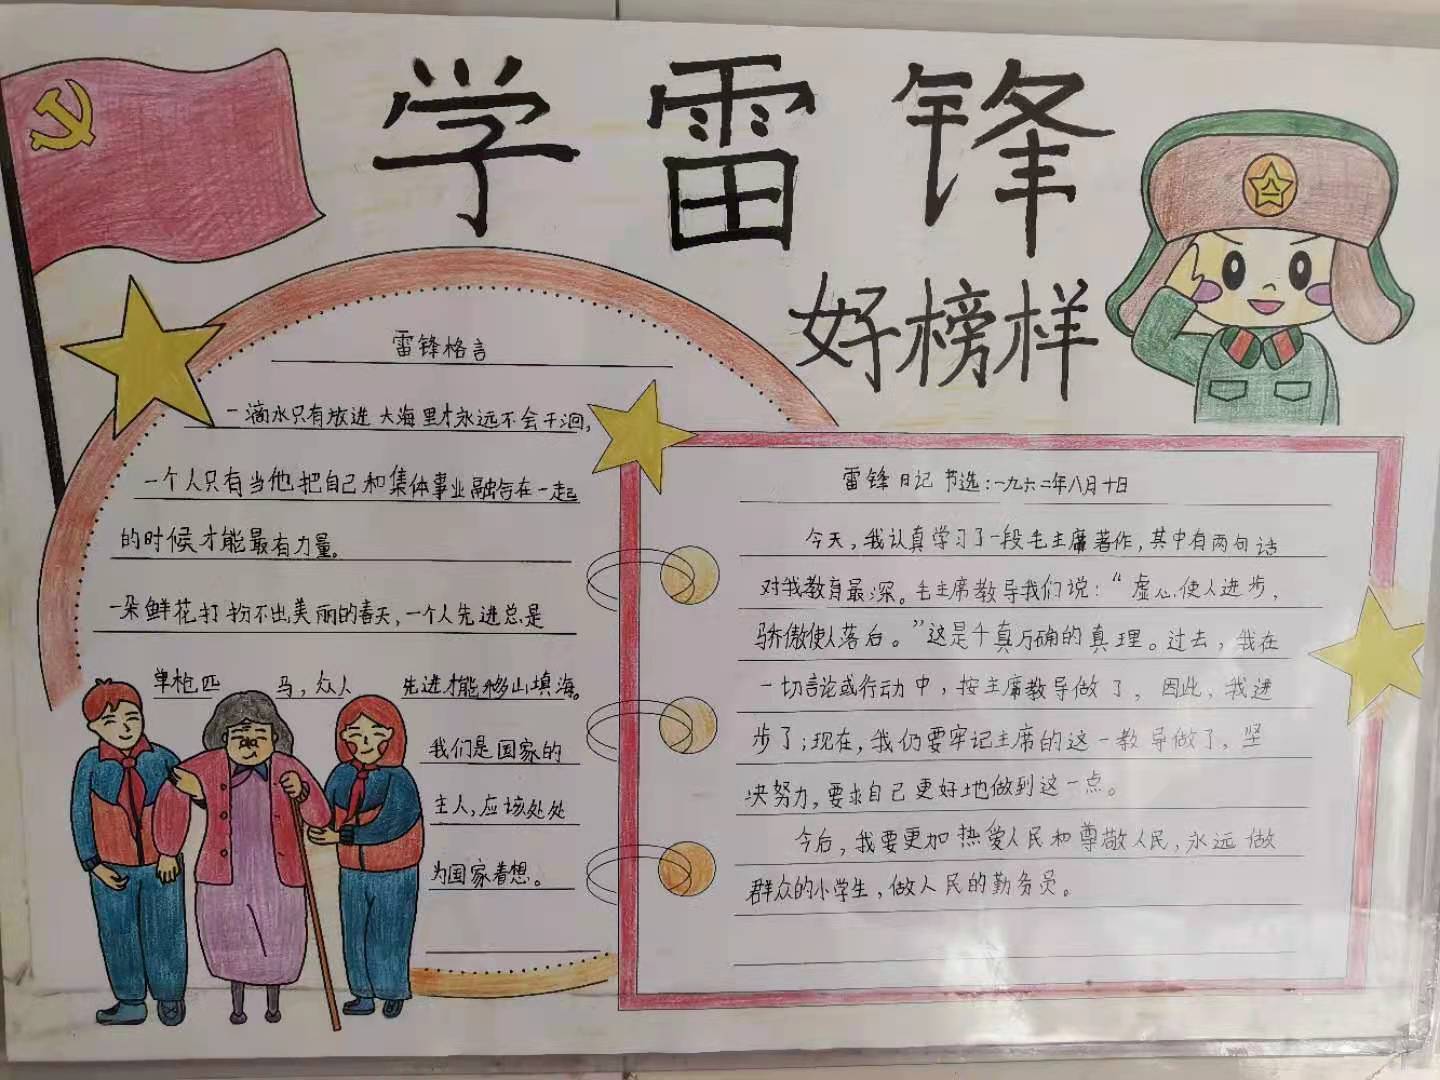 学雷锋
好榜样
雷锋格言
一滴水只有放进大海里才永远不会干涸,
一个人只有当他把自己和集体事业融合在一起
的时候才能最有力量。
一朵鲜花打扮不出美丽的春天,一个人先进总是
单枪匹马,众人先进才能移山填海。
我们是国家的
主人,应该处处
为国家着想。
雷锋日记节选:一九六二年八月十日
今天,我认真学习了一段毛主席著作,其中有两句话
对我教育最深。毛主席教导我们说:“虚心使人进步,
骄傲使人落后。”这是千真万确的真理。过去,我在
一切言论或行动中,按主席教导做了,因此,我进
步了;现在,我仍要牢记主席的这一教导做了,坚
决努力,要求自己更好地做到这一点。
今后,我要更加热爱人民和尊敬人民,永远做
群众的小学生,做人民的勤务员。